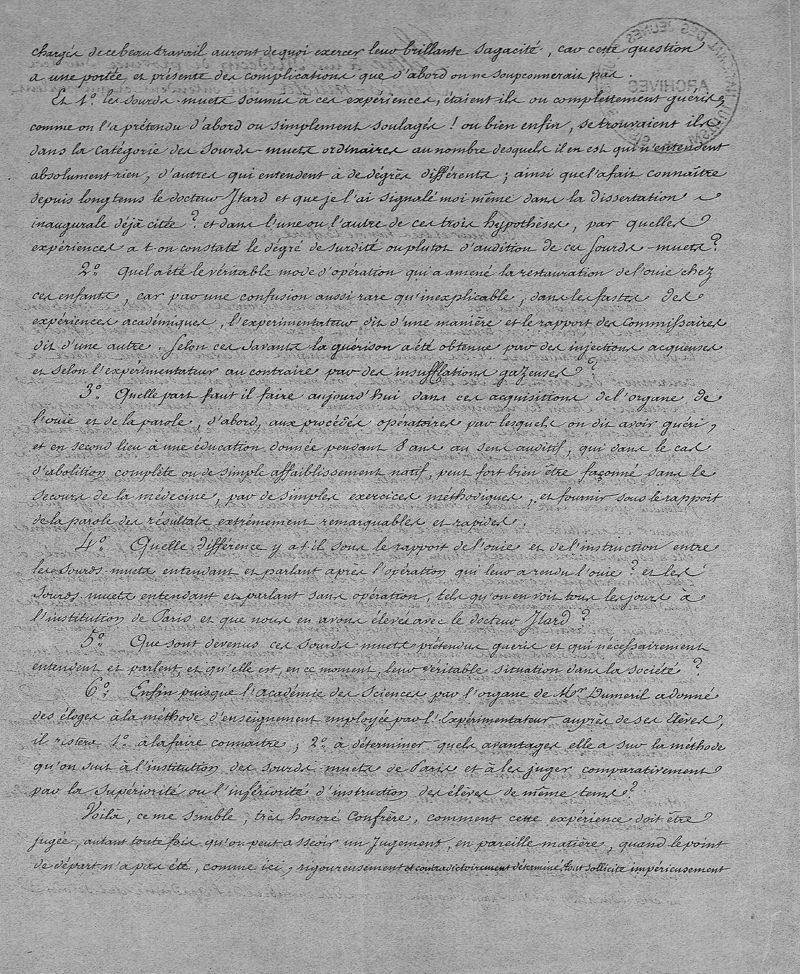 chargés de ce beau travail auront de quoi exercer leur brillante sagacité, car cette question
a une portée et présente des complications que d'abord on ne soupconnerait pas.
Et 1.° les sourds-muets soumis à ces expériences, étaient ils ou complettement guéris,
comme on l'a prétendu d'abord ou simplement soulagés ! ou bien enfin, se trouvaient ils
dans la catégorie des sourds-muets ordinaires au nombre desquels il en est qui n'entendent
absolument rien, d'autres qui entendent à des dégrés différents ; ainsi que l'a fait connaître
depuis longtems le docteur Itard et que je l'ai signalé moi même dans la dissertation
inaugurale déjà citée ? et dans l'une ou l'autre de ces trois hypothèses, par quelles
expériences a t on constaté le dégré de surdité ou plutot d'audition de ces sourds-muets ?
2.° Quel a été le véritable mode d'opération qui a amené la restauration de l'ouie chez
ces enfants, car par une confusion aussi rare qu'inexplicable, dans les fastes des
expériences académiques, l'expérimentateur dit d'une manière et le rapport des Commissaires
dit d'une autre. Selon ces savants la guérison a été obtenue par des injections acqueuses
et selon l'expérimentateur au contraire par des insufflations gazeuses ?
3.° Quelle part faut il faire aujourd'hui dans ces acquisitions de l'organe de
l'ouie et de la parole, d'abord, aux procédés opératoires par lesquels on dit avoir guéri,
et en second lieu à une éducation donnée pendant 8 ans au sens auditif, qui dans le cas
d'abolition complète ou de simple affaiblissement natif, peut fort bien être façonné sans le
secours de la médecine, par de simples exercices méthodiques, et fournir sous le rapport
de la parole des résultats extrêmement remarquables et rapides.
4.° Quelle différence y a t il sous le rapport de l'ouie et de l'instruction entre
les sourds-muets entendant et parlant après l'opération qui leur a rendu l'ouie ? et les
sourds-muets entendant et parlant sans opération, tels qu'on en voit tous les jours à
l'institution de Paris et que nous en avons élevés avec le docteur Itard ?
5.° Que sont devenus ces sourds muets prétendus guéris et qui nécessairement
entendent et parlent, et qu'elle est, en ce moment, leur véritable situation dans la société ?
6.° Enfin puisque l'académie des Sciences par l'organe de Mr. Dumeril a donné
des éloges à la méthode d'enseignement employée par l'Expérimentateur auprès de ses élèves,
il restera 1.° à la faire connaitre ; 2.° à déterminer quels avantages elle a sur la méthode
qu'on suit à l'institution des sourds-muets de Paris et à les juger comparativement
par la Supériorité ou l'infériorité d'instruction des élèves de même tems ?
Voilà, ce me semble, très honoré Confrère, comment cette expérience doit être
jugée, autant toute fois qu'on peut asseoir un Jugement, en pareille matière, quand le point
de départ n'a pas été, comme ici, rigoureusement et contradictoirement déterminé. tout sollicite impérieusement
ARCHIVES